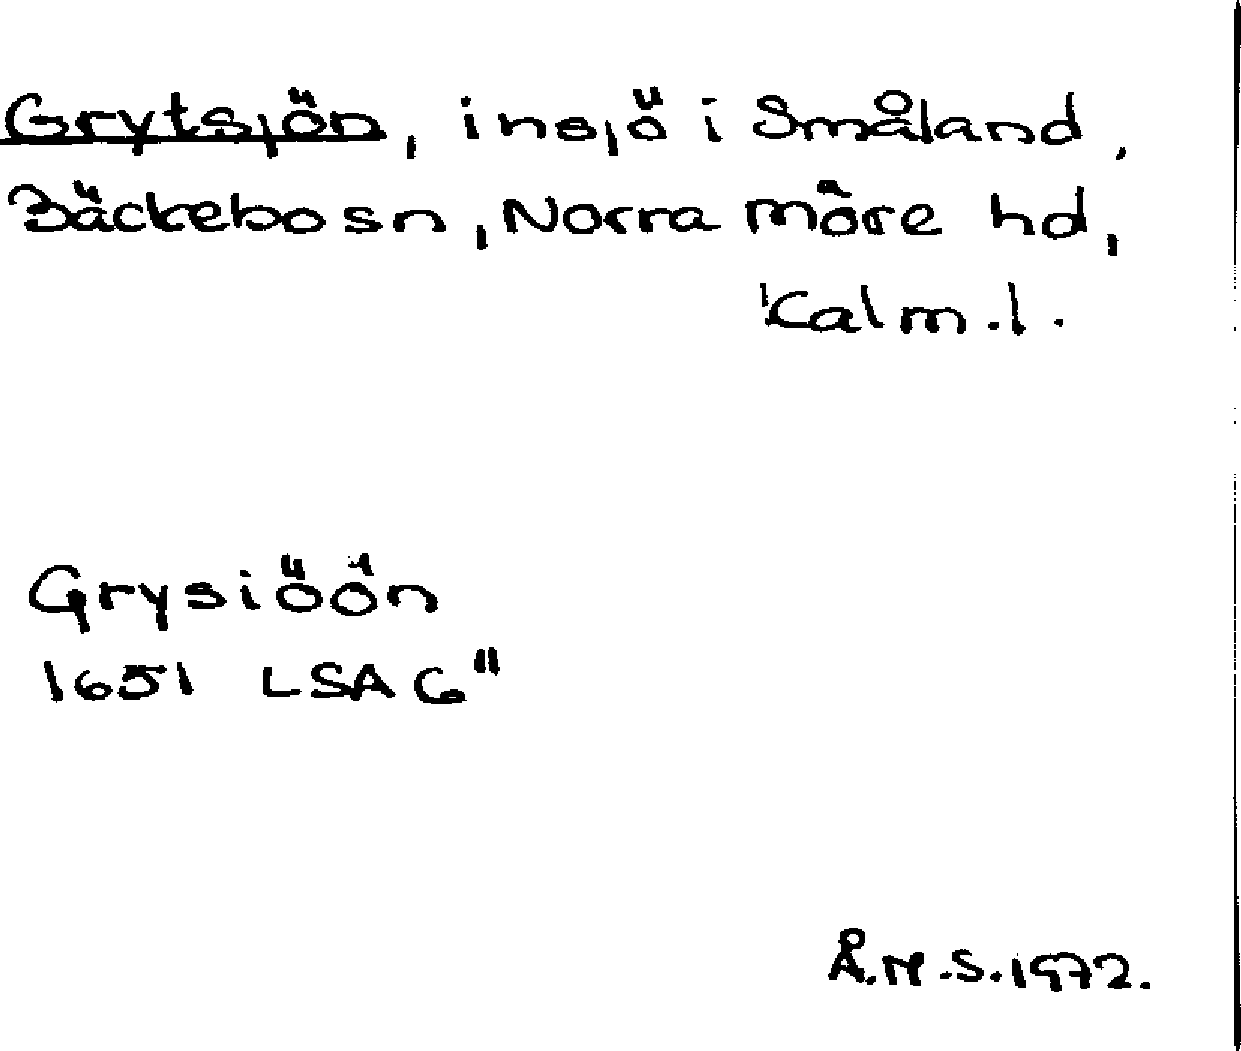 Grytsjön, insjö i Småland,
Bäckebo sn, Norra Möre hd,
Kalm.l.
Grysiöön
1651 LSA G"
Å.N.S.1972.